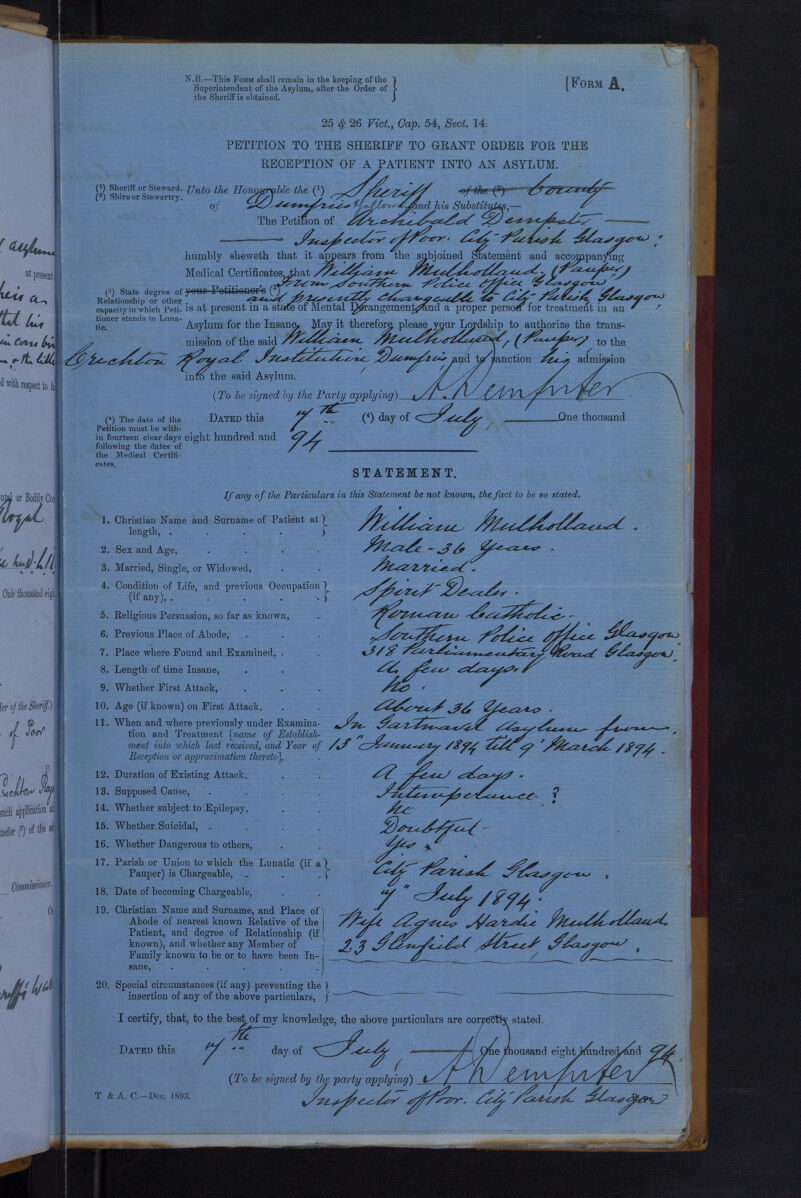 N.B.—This Form shall remain in the keeping of the
Superintendent of the Asylum, after the Order of
the Sheriff is obtained.
[Form A.
25 & 26 Vict., Cap. 54, Sect. 14.
PETITION TO THE SHERIFF TO GRANT ORDER FOR THE
RECEPTION OF A PATIENT INTO AN ASYLUM.
(1) Sheriff or Steward.
(2) Shire or Stewartry.
Unto the Honourable the (1) Sheriff of the (2) County
of Dumfries & Galloway and his Substitutes,—
The Petition of Archibald Dempster
Inspector of Poor. City Parish Glasgow;
humbly sheweth that it appears from the subjoined Statement and accompanying
Medical Certificates, that William Mulholland, (Pauper)
(3) State degree of
Relationship or other
capacity in which Peti-
tioner stands to Luna-
tic.
your Petitioner's (3) From Southern Police Office Glasgow
and presently chargeable to City Parish Glasgow,
is at present in a state of Mental Derangement, and a proper person for treatment in an
Asylum for the Insane. May it therefore please your Lordship to authorize the trans-
mission of the said William Mulholland, (Pauper) to the
Crichton Royal Institution, Dumfries and to sanction his admission
into the said Asylum.
(To be signed by the Party applying) A. Dempster
(4) The date of the
Petition must be with-
in fourteen clear days
following the dates of
the Medical Certifi-
cates.
Dated this 7th (4) day of July, One thousand
eight hundred and 94
STATEMENT.
If any of the Particulars in this Statement be not known, the fact to be so stated.
1. Christian Name and Surname of Patient at
length, . William Mulholland.
2. Sex and Age, Male - 36 Years.
3. Married, Single, or Widowed, Married.
4. Condition of Life, and previous Occupation
(if any), . Spirit Dealer.
5. Religious Persuasion, so far as known, Roman Catholic.
6. Previous Place of Abode, Southern Police Office Glasgow
7. Place where Found and Examined, 318 Parliamentary Road Glasgow.
8. Length of time Insane, A few days.
9. Whether First Attack, No.
10. Age (if known) on First Attack, About 36 Years.
11. When and where previously under Examina-
tion and Treatment [name of Establish-
ment into which last received, and Year of
Reception or approximation thereto],
In Gartnavel Asylum from
13" January 1894 till 9' March 1894.
12. Duration of Existing Attack, A few days.
13. Supposed Cause, Intemperance ?
14. Whether subject to Epilepsy,
15. Whether Suicidal, Doubtful
16. Whether Dangerous to others, Yes
17. Parish or Union to which the Lunatic (if a
Pauper) is Chargeable, City Parish Glasgow.
18. Date of becoming Chargeable, 7" July 1894.
19. Christian Name and Surname, and Place of
Abode of nearest known Relative of the
Patient, and degree of Relationship (if
known), and whether any Member of
Family known to be or to have been In-
sane,
Wife Agnes Hardie Mulholland
23 Glenfield Street, Glasgow.
20. Special circumstances (if any) preventing the
insertion of any of the above particulars,
I certify, that, to the best of my knowledge, the above particulars are correctly stated.
Dated this 7th day of July, One thousand eight hundred and 94.
(To be signed by the party applying) A. Dempster
Inspector of Poor. City Parish Glasgow
T & A. C.—Dec. 1893.
at present
d with respect to h
One thousand eigh
of Poor
such application
Commissioner.